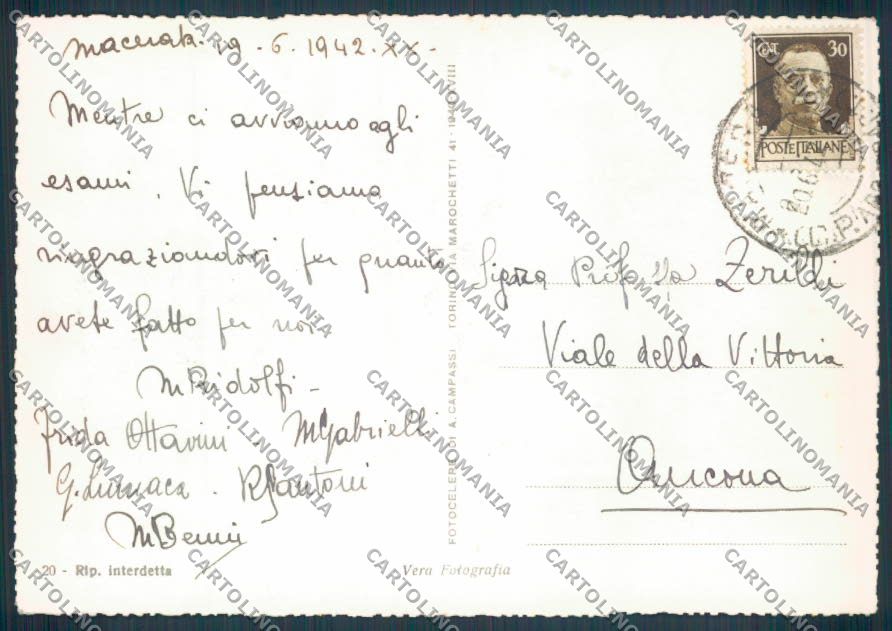 Macerata. 19 - 6. 1942. XX -
Mentre ci avviamo agli
esami. Vi pensiamo
ringraziandovi per quanto
avete fatto per noi
M Ridolfi -
Frida Ottavini. M Gabrielli
G. Lumaca. R Santoni
M Benni
20 - Rip. interdetta
Vera Fotografia
FOTOCELERE DI A. CAMPASSI TORINO VIA MAROCHETTI 41 -
30
POSTE ITALIANE
Sig.ra Prof.ssa Zerilli
Viale della Vittoria
Ancona
CARTOLINOMANIA